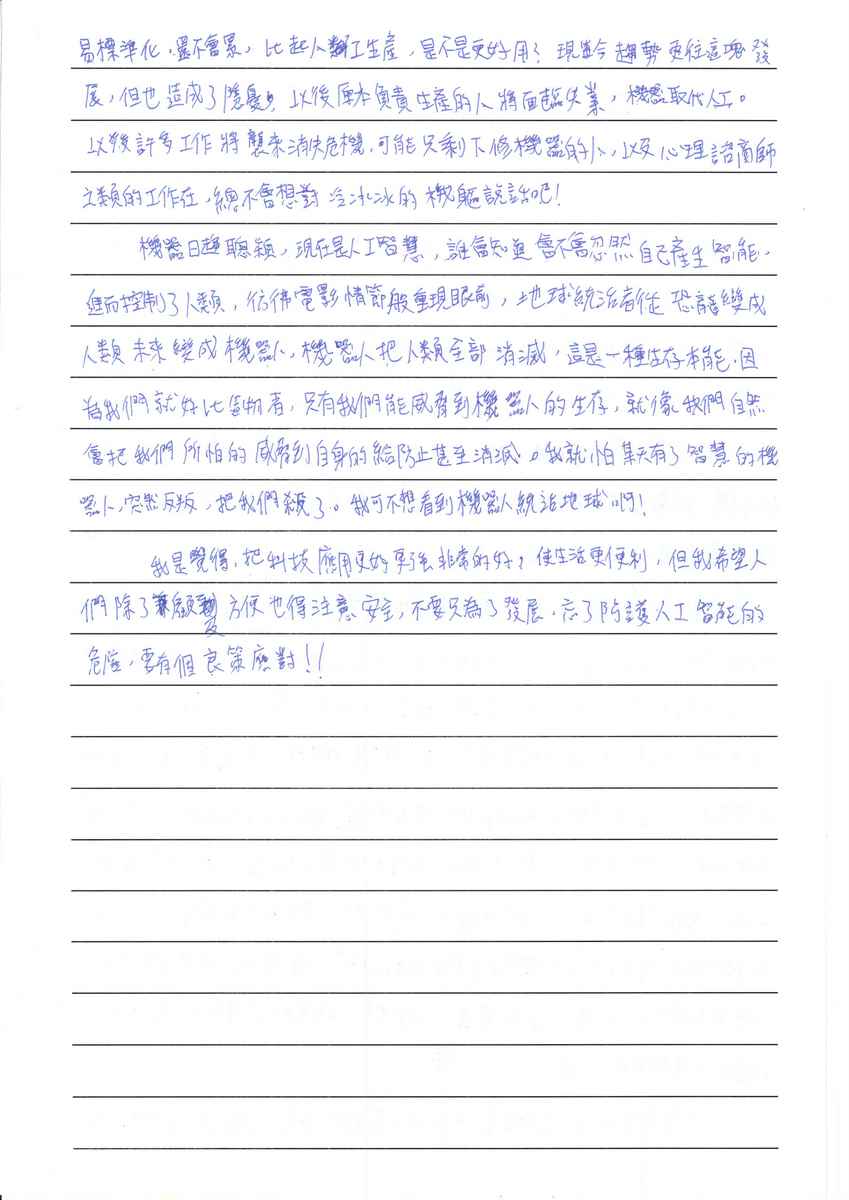 易標準化,還不會累,比起人類工生產,是不是更好用?現今趨勢更往這塊發
展,但也造成了隱憂,以後原本負責生產的人將面臨失業,機器取代人工。
以後許多工作將襲來消失危機,可能只剩下修機器的人,以及心理諮商師
之類的工作在,總不會想對冷冰冰的機軀說話吧!
機器日趨聰穎,現在是人工智慧,誰會知道會不會忽然自己產生智能,
進而控制了人類,彷彿電影情節般重現眼前,地球統治者從恐龍變成
人類未來變成機器人,機器人把人類全部消滅,這是一種生存本能,因
為我們就好比造物者,只有我們能威脅到機器人的生存,就像我們自然
會把我們所怕的威脅到自身的給防止甚至消滅。我就怕某天有了智慧的機
器人,突然反叛,把我們殺了。我可不想看到機器人統治地球啊!
我是覺得,把科技應用更好更強非常的好,使生活更便利,但我希望人
們除了兼顧變方便也得注意安全,不要只為了發展,忘了防護人工智能的
危險,要有個良策應對!!